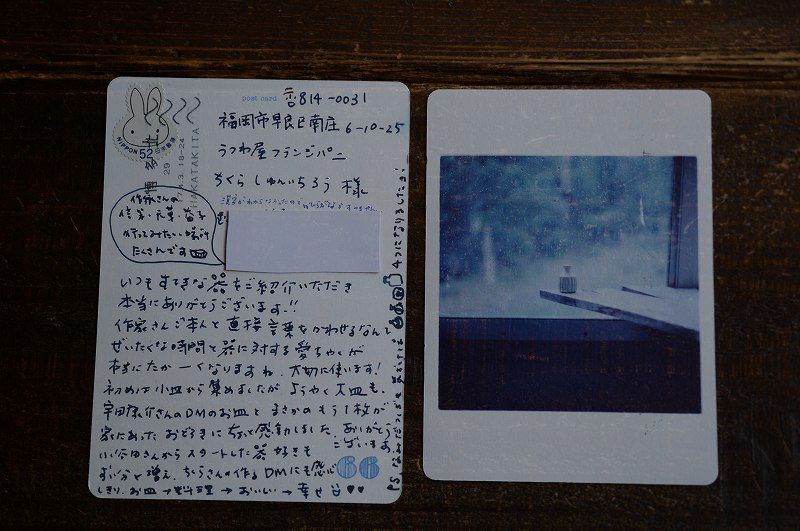 post card
〒814-0031
福岡市早良区南庄 6-10-25
うつわ屋フランジパニ
ちくら しゅんいちろう 様
NIPPON 52 日本郵便
博多北
29
18-24
HAKATAKITA
作家さんの
行ってみたい場所
たくさんです
いつもすてきな器をご紹介いただき
本当にありがとうございます!!
作家さんご本人と直接言葉をかわせるなんて
ぜいたくな時間と器に対する愛ちゃくが
本当にたかーくなりますね。大切に使います!
初めは小皿から集めましたが ようやく大皿も。
さんのDMのお皿と まさかのもう1枚が
家にあった おどろきに ちょっと感動しました。ありがとう
ございます
さんからスタートした器好きも
ずい分と増え、ちくらさんの作るDMにも感心
しきり。お皿→料理→おいしい→幸せ
PS
4つになりましたョ!